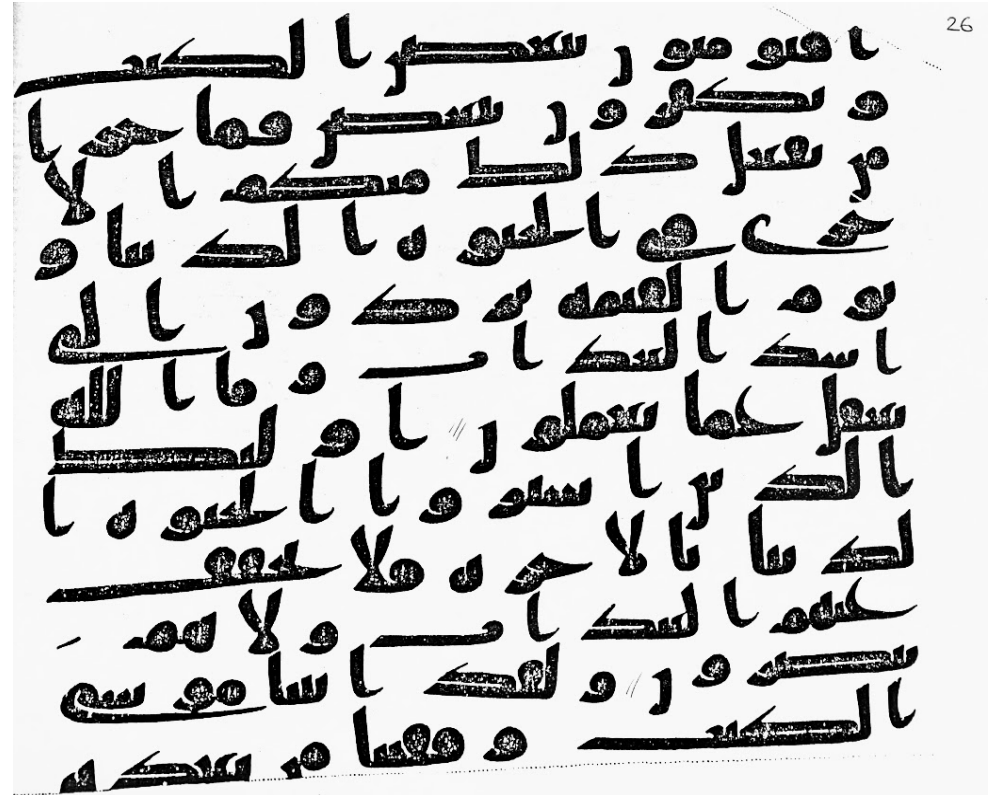 26
افتومنون ببعض الكتب
وتكفرون ببعض فما جزا
من يفعل ذلك منكم الا
خزي في الحيوة الدنيا و
يوم القيمة يردون الى
اشد العذاب وما الله
بغفل عما تعملون اولئك
الذين اشتروا الحيوة ا
لدنيا بالاخرة فلا يخفف
عنهم العذاب ولا هم
ينصرون ولقد اتينا موسى
الكتب وقفينا من بعد